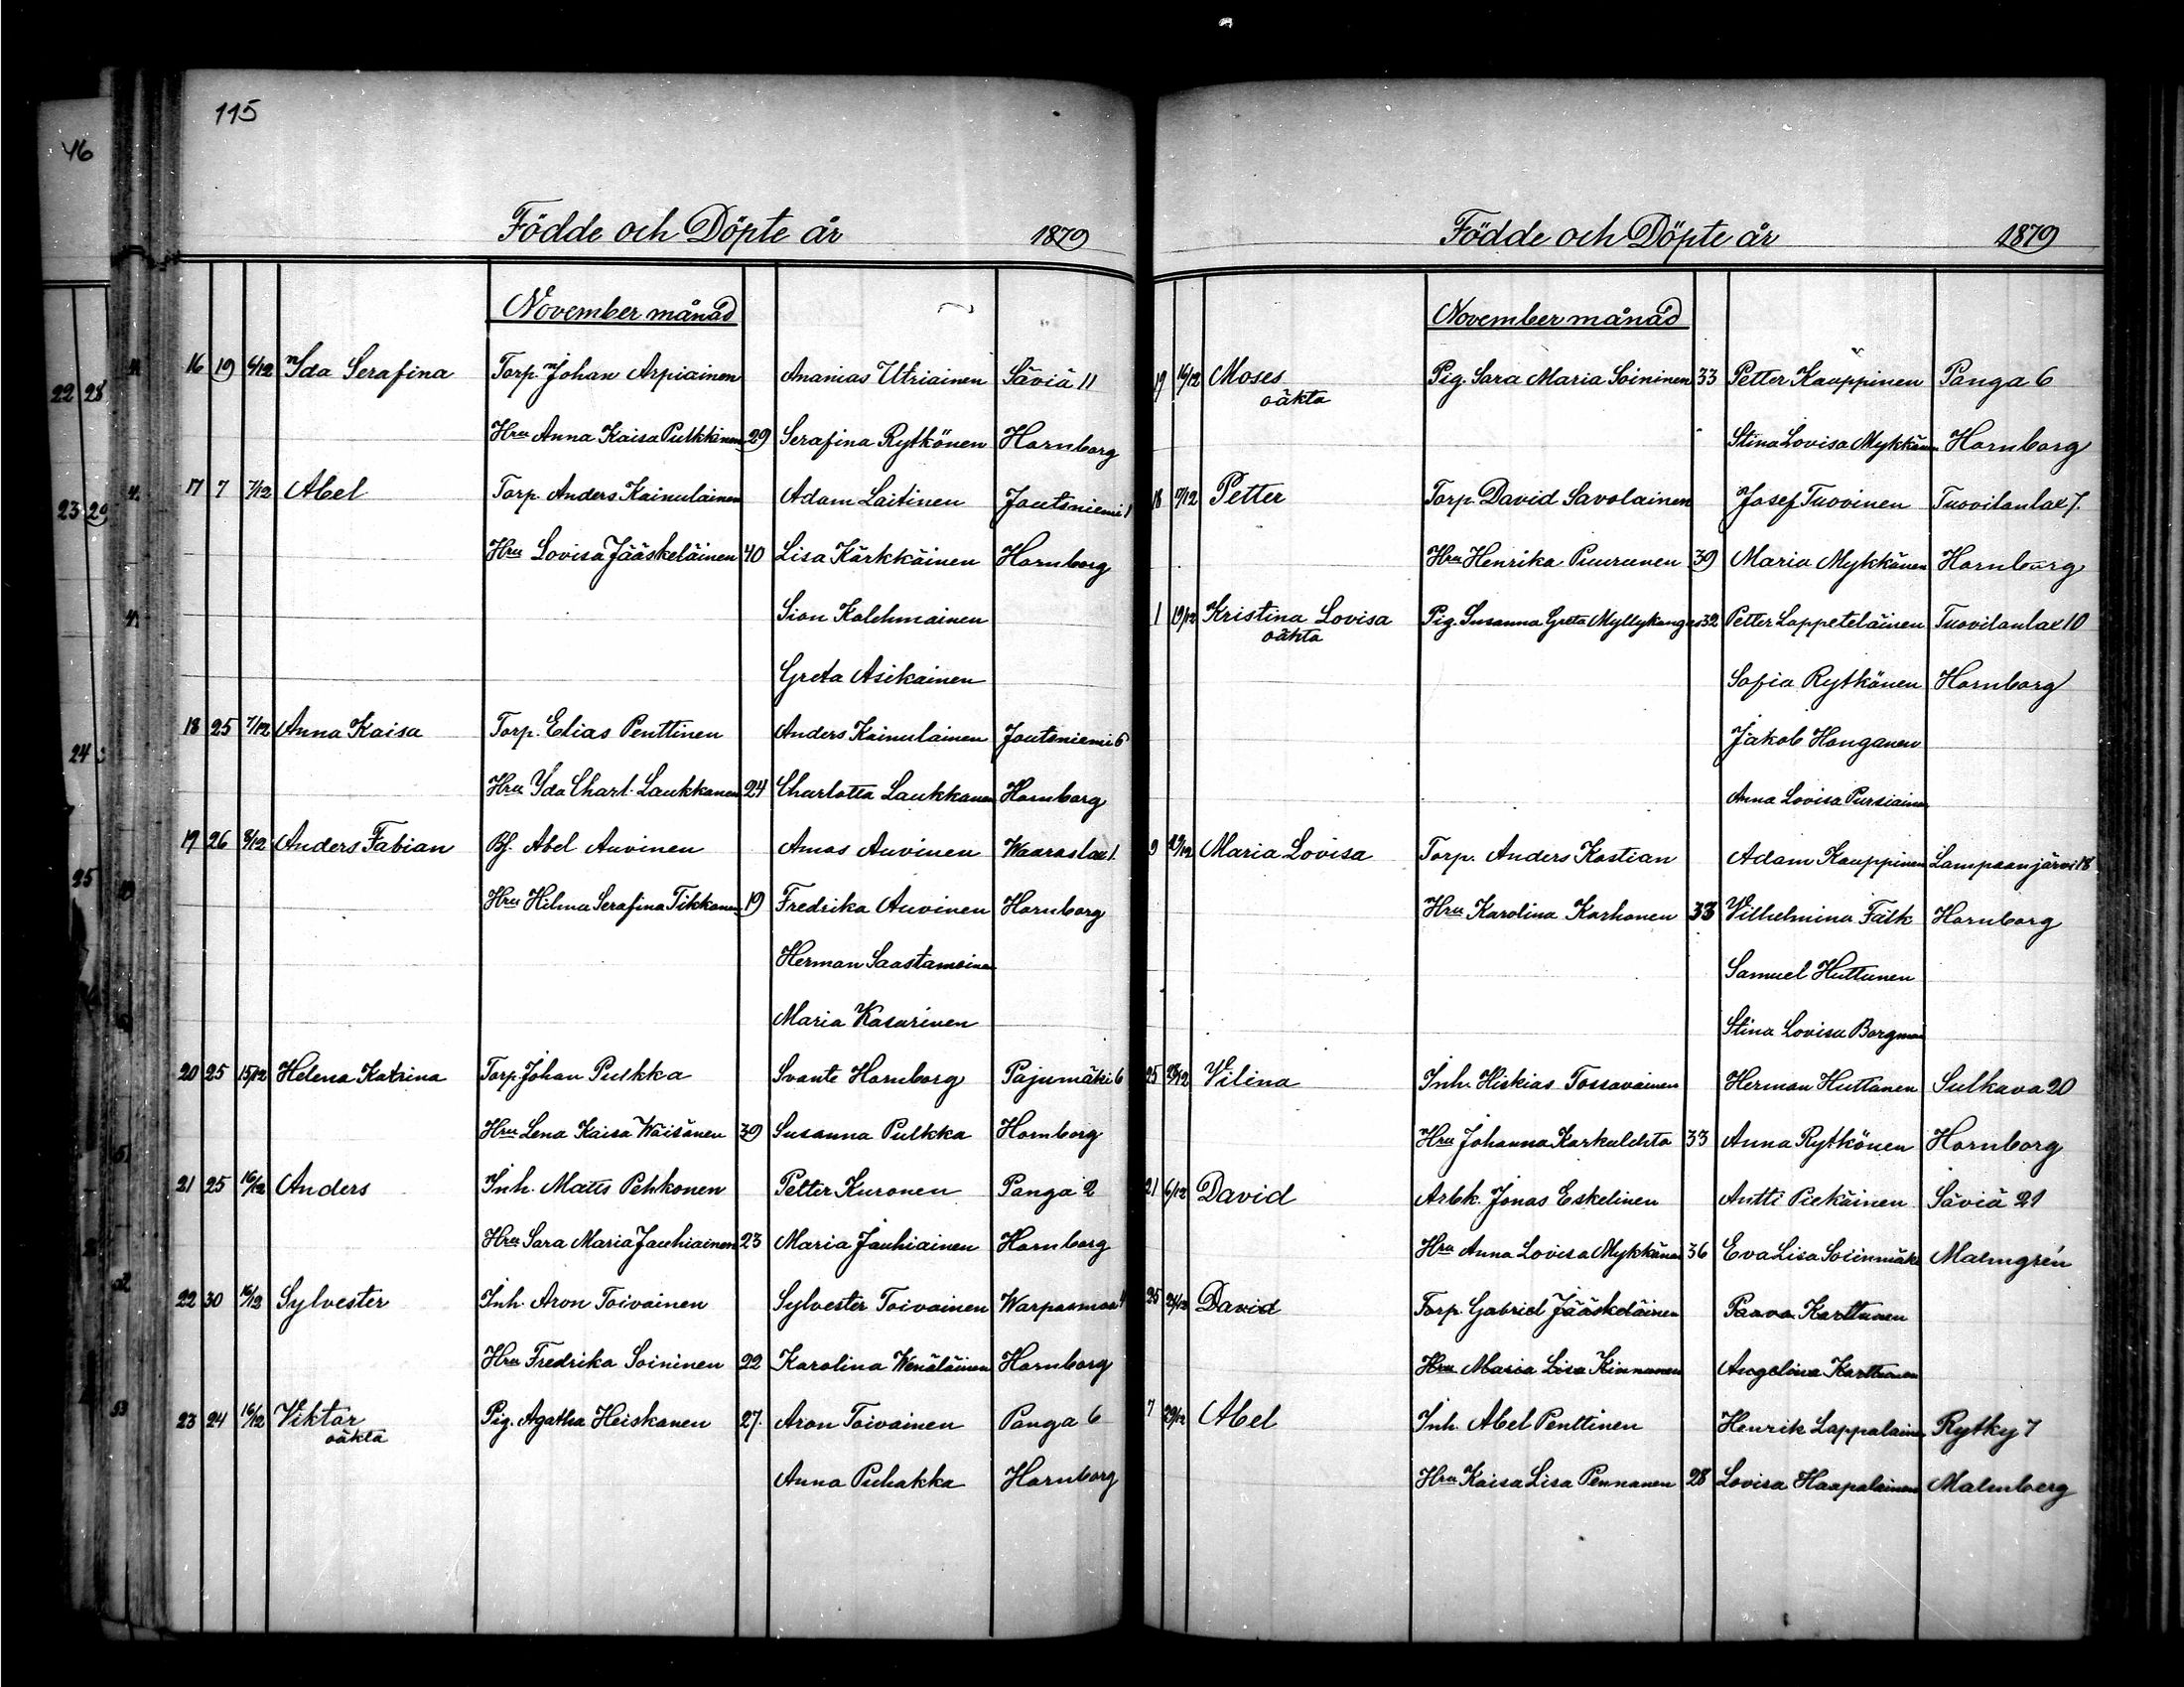 115
46
Födde och Döpte år 1879
November månad
16 19 6/12 Ida Serafina Torp. Johan Arpiainen Ananias Utriainen Säviä 11
Hru Anna Kaisa Pulkkinen 29 Serafina Rytkönen Hornborg
17 7 7/12 Abel Torp. Anders Kainulainen Adam Laitinen Joutsniemi 1
Hru Lovisa Jääskeläinen 40 Lisa Kärkkäinen Hornborg
Sion Kolehmainen
Greta Asikainen
18 25 7/12 Anna Kaisa Torp. Elias Penttinen Anders Kainulainen Joutsniemi 6
Hru Ida Charl. Laukkanen 24 Charlotta Laukkanen Hornborg
19 26 8/12 Anders Fabian Bf. Abel Auvinen Amos Auvinen Waaraslax 1.
Hru Hilma Serafina Tikkanen 19 Fredrika Auvinen Hornborg
Herman Saastamoinen
Maria Kasurinen
20 25 15/12 Helena Katrina Torp. Johan Pulkka Svante Hornborg Pajumäki 6
Hru Lena Kaisa Wäisänen 39 Susanna Pulkka Hornborg
21 25 16/12 Anders Inh. Matts Pehkonen Petter Kuronen Panga 2
Hru Sara Maria Jauhiainen 23 Maria Jauhiainen Hornborg
22 30 16/12 Sylvester Inh. Aron Toivainen Sylvester Toivainen Warpasmaa 4
Hru Fredrika Soininen 22 Karolina Wenäläinen Hornborg
23 24 16/12 Viktor Pig. Agatha Heiskanen 27. Aron Toivainen Panga 6
oäkta
Anna Puhakka Hornborg
Födde och Döpte år 1879
November månad
19 16/12 Moses Pig. Sara Maria Soininen 33 Petter Kauppinen Panga 6
oäkta
Stina Lovisa Mykkänen Hornborg
18 Petter Torp. David Savolainen Josef Tuovinen Tuovilanlax 7.
Hru Henrika Puurunen 39 Maria Mykkänen Hornborg
1 19/12 Kristina Lovisa Pig. Susanna Greta Myllykangas 32 Petter Lappeteläinen Tuovilanlax 10
oäkta
Sofia Rytkönen Hornborg
Jakob Honganen
Anna Lovisa Pursiainen
9 Maria Lovisa Torp. Anders Kastian Adam Kauppinen Lampaanjärvi 18
Hru Karolina Korhonen 33 Vilhelmina Falk Hornborg
Samuel Huttunen
Stina Lovisa Borgman
25 Vilina Inh. Hiskias Tossavainen Herman Huttunen Sulkava 20
Hru Johanna Karkulehto 33 Anna Rytkönen Hornborg
21 6/12 David Arbk. Jonas Eskelinen Antti Piekäinen Säviä 21
Hru Anna Lovisa Mykkänen 36 Eva Lisa Soiinmäki Malmgrén
25 David Torp. Gabriel Jääskeläinen Paavo Karttunen
Hru Maria Lisa Kinnunen Angelina Karttunen
7 29/12 Abel Inh. Abel Penttinen Henrik Lappalainen Rytky 7
Hru Kaisa Lisa Pennanen 28 Lovisa Haapalainen Malmberg